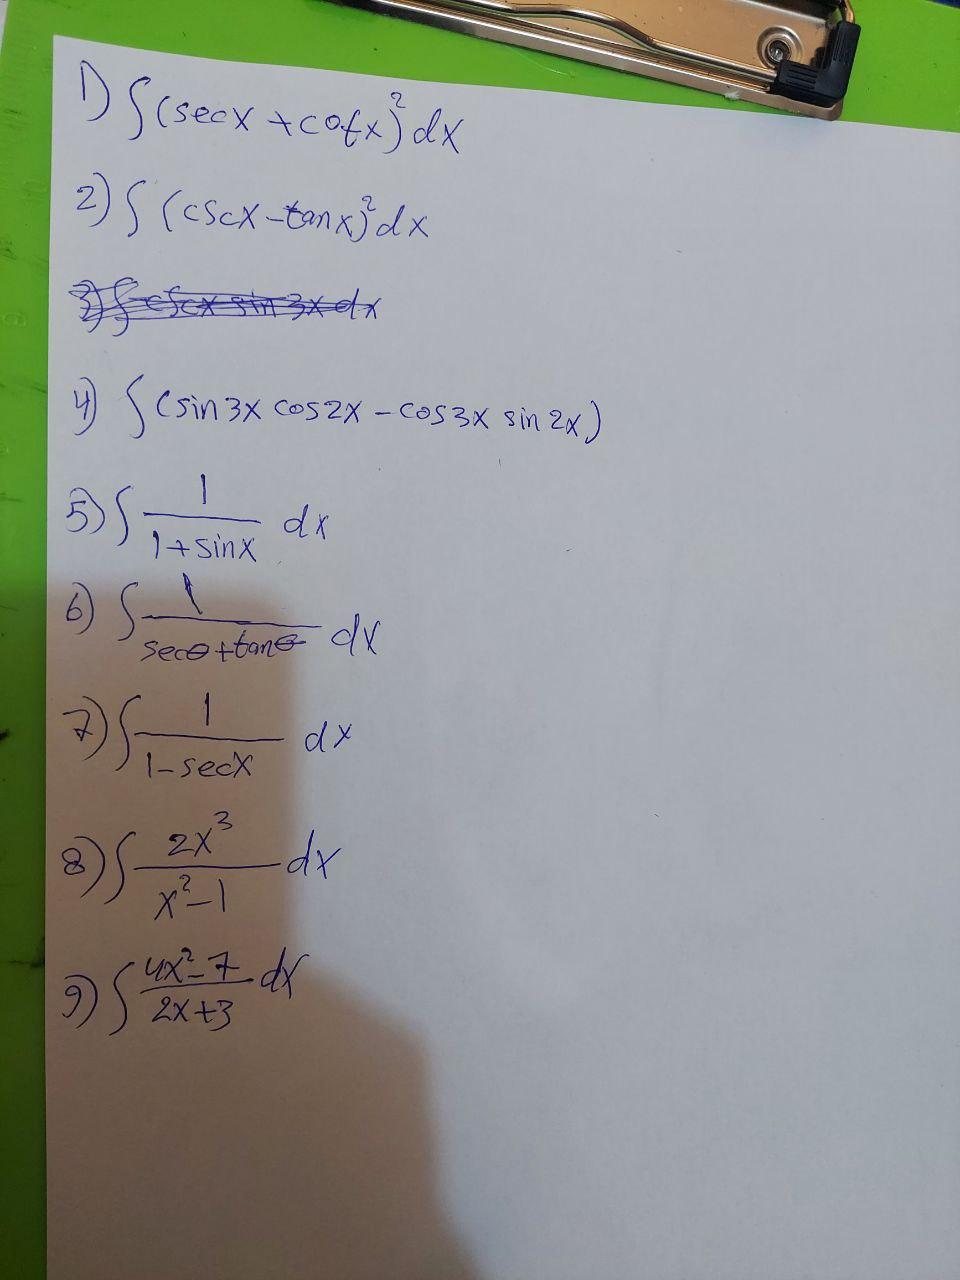 1) ∫(secx + cotx)² dx
2) ∫ (cscx - tanx)² dx
3) ∫ cscx sin 3x dx
4) ∫ (sin 3x cos2x - cos3x sin 2x)
5) ∫ 1/(1+sinx) dx
6) ∫ 1/(secθ + tanθ) dx
7) ∫ 1/(1-secx) dx
8) ∫ 2x³/(x²-1) dx
9) ∫ (4x²-7)/(2x+3) dx